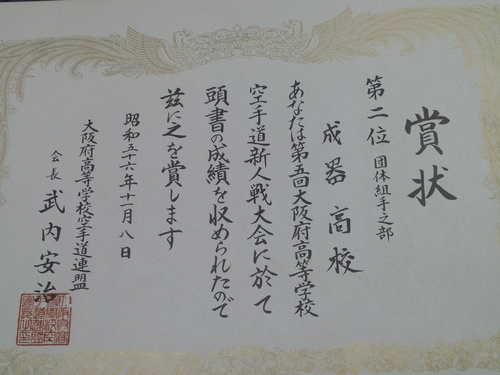 賞状
第二位 団体組手之部
成器高校
あなたは第五回大阪府高等学校
空手道新人戦大会に於て
頭書の成績を収められたので
茲に之を賞します
昭和五十六年十一月八日
大阪府高等学校空手道連盟
会長 武内安治